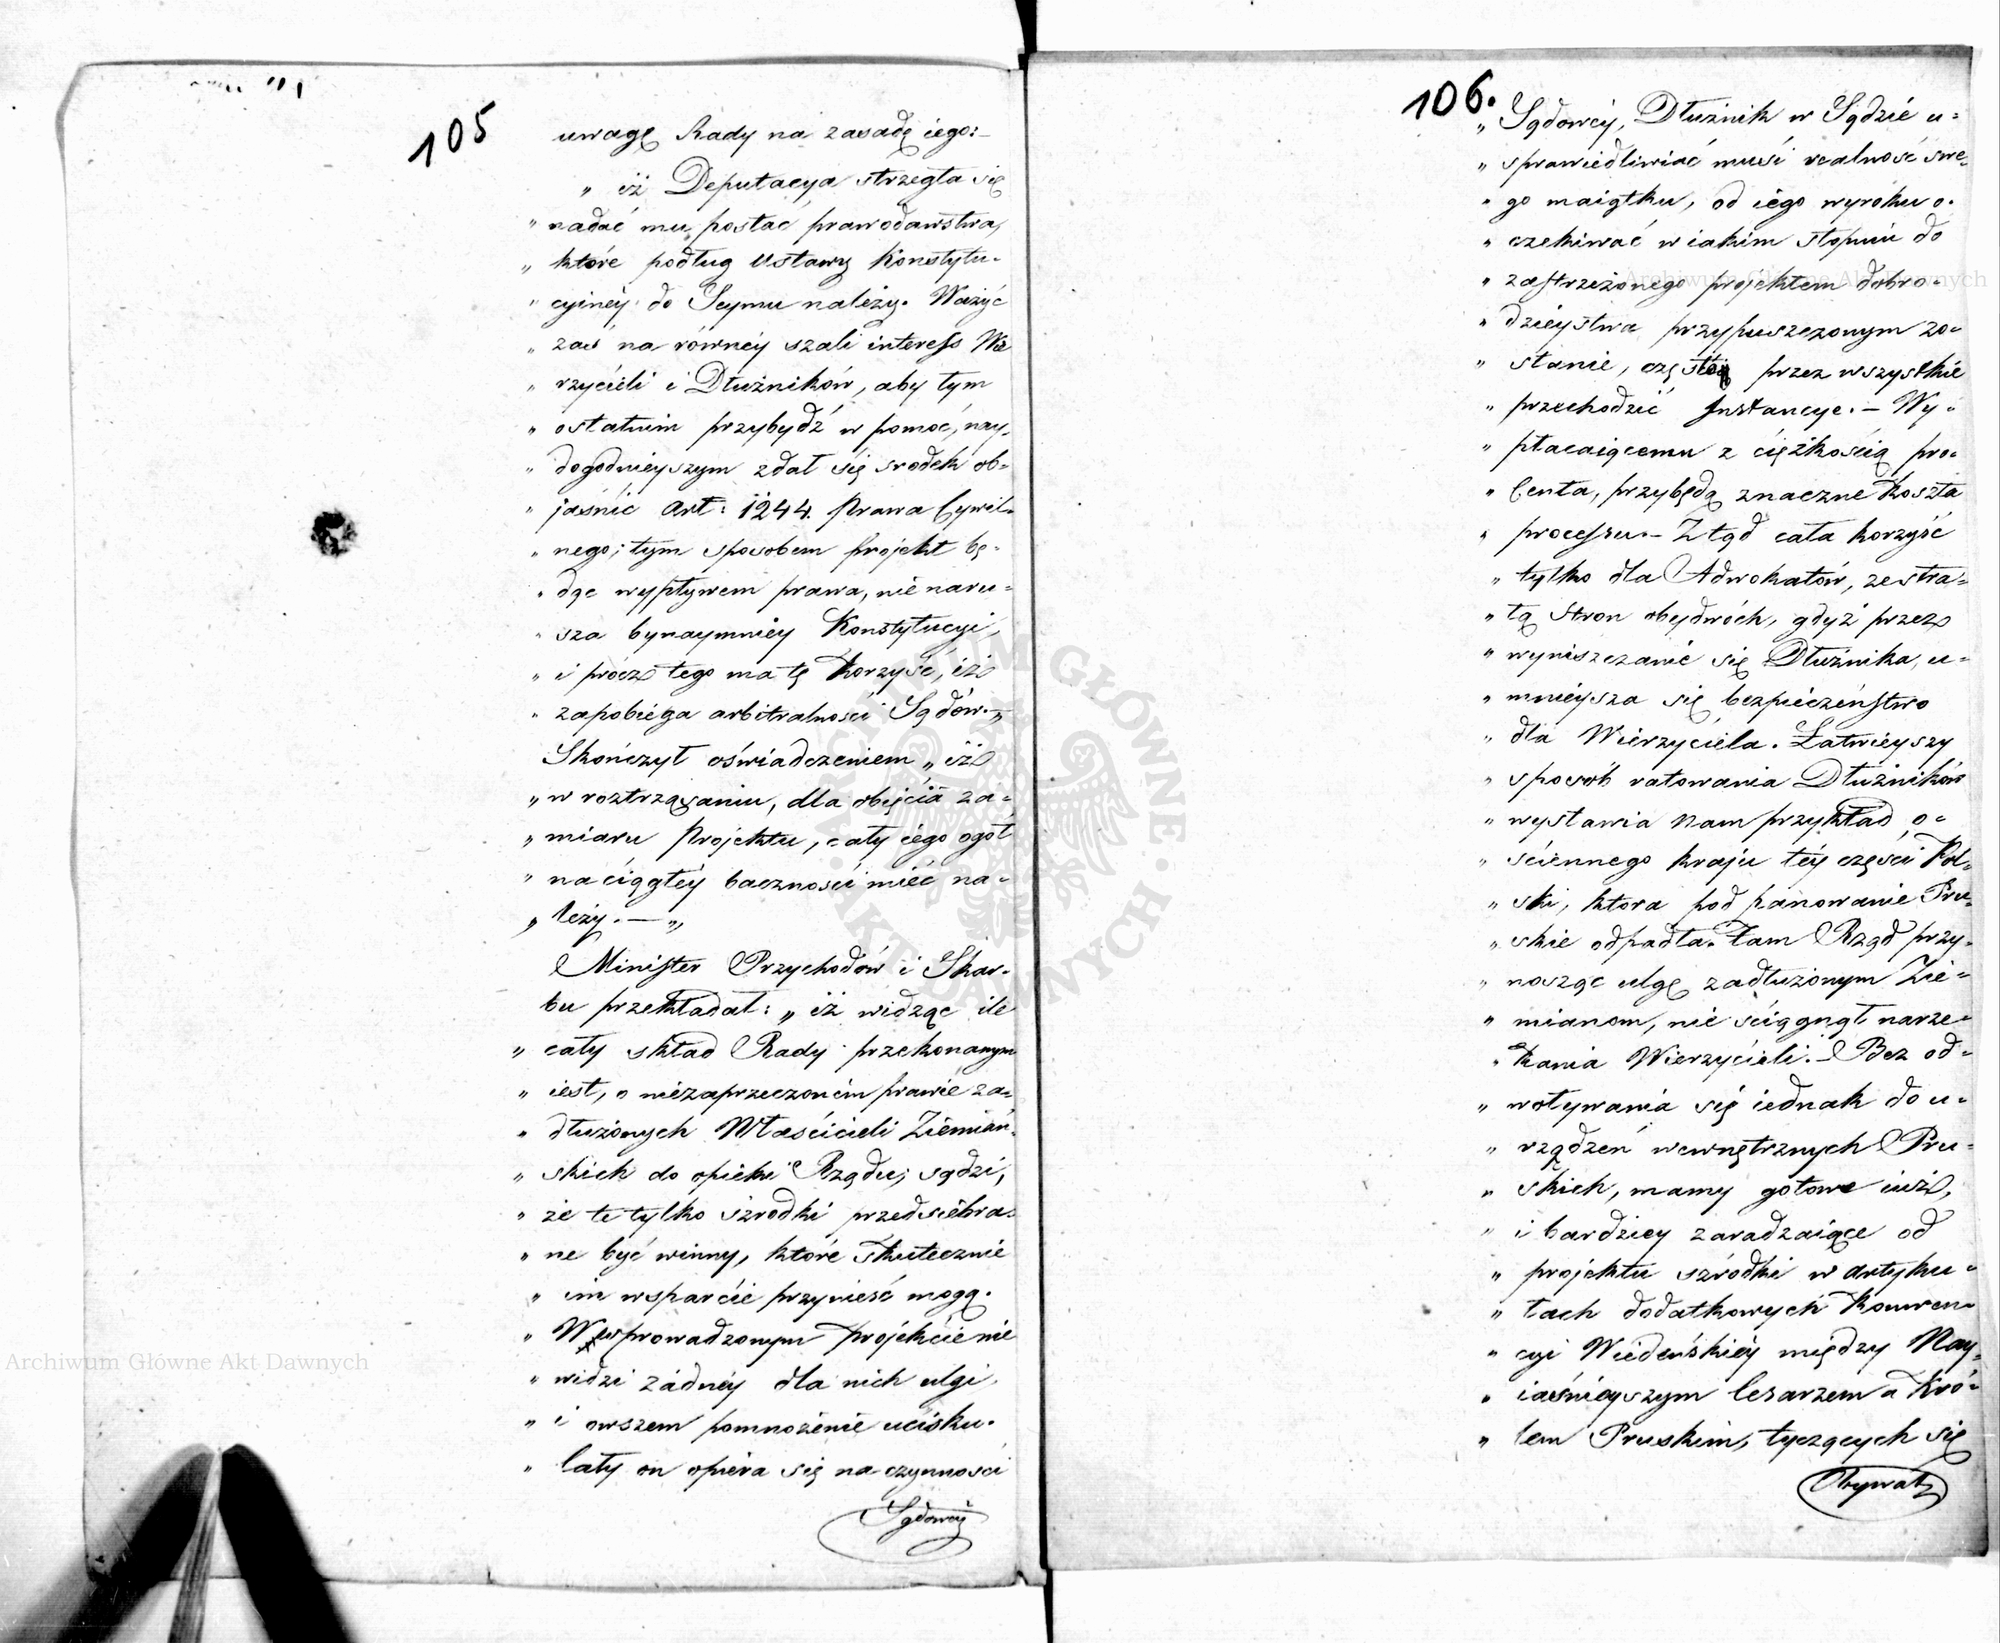 105
uwagę Rady na zasadę iego:—
„ iż Deputacya strzegła się
„ nadać mu postać prawodawstwa,
„ które podług Ustawy Konstytu-
„ cyinéy do Seymu należy. Ważyć
„ zaś na równéy szali interess Wie
„ rzycieli i Dłużników, aby tym
„ ostatnim przybydź w pomoc, nay-
„ dogodnieyszym zdał się srodek ob-
„ jaśnić Art: 1244. Prawa Cywil-
„ nego; tym sposobem projekt bę-
„ dąc wypływem prawa, nie naru-
„ sza bynaymniéy Konstytucyi,
„ i prócz tego ma tę korzyść, iż
„ zapobiega arbitralnosci Sądów.—„
Skończył oświadczeniem „ iż
„ w roztrząsaniu, dla objęcia za-
„ miaru Projektu, cały iego ogół
„ na ciągłéy bacznosci mieć na-
„ leży.—„
Minister Przychodów i Skar-
bu przekładał: „ iż widząc ile
„ cały skład Rady przekonanym
„ iest, o niezaprzeczonem prawie za-
„ dłużonych Właścicieli Ziemiań-
„ skich do opieki Rządu; sądzi,
„ że te tylko szrodki przedsiébra-
„ ne być winny, które skutecznie
„ im wsparcie przynieść mogą.
„ W wprowadzonym projekcie nie
„ widzi żadnéy dla nich ulgi,
„ i owszem pomnożenie ucisku.
„ Cały on opiera się na czynnosci
Sądowéy
106.
„ Sądowéy, Dłużnik w Sądzie u-
„ sprawiedliwiać musi realność swe-
„ go maiątku, od iego wyroku o-
„ czekiwać w iakim stopniu do
„ zastrzeżonego projektem dobro-
„ dzieystwa przypuszczonym zo-
„ stanie, przez wszystkie
„ przechodzić Instancye.— Wy-
„ płacaiącemu z ciężkością pro-
„ centa, przybędą znaczne koszta
„ processu.— Ztąd cała korzyść
„ tylko dla Adwokatów, ze stra-
„ tą Stron obydwóch, gdyż przez
„ wyniszczanie się Dłużnika, u-
„ mnieysza się bezpieczeństwo
„ dla Wierzyciela. Łatwieyszy
„ sposób ratowania Dłużników
„ wystawia nam przykład o-
„ ściennego kraju téy części Pol-
„ ski, ktora pod panowanie Pru-
„ skie odpadła. Tam Rząd przy-
„ nosząc ulgę zadłużonym Zie-
„ mianom, nie ściągnął narze-
„ kania Wierzycieli.— Bez od-
„ woływania się iednak do u-
„ rządzeń wewnętrznych Pru-
„ skich, mamy gotowe iuż,
„ i bardziey zaradzaiące od
„ projektu szrodki w artyku-
„ łach dodatkowych Konwen-
„ cyi Wiedeńskiéy między Nay-
„ iaśnieyszym Cesarzem a Kró-
„ lem Pruskim, tyczących się
Obywat
Archiwum Główne Akt Dawnych
Archiwum Główne Akt Dawnych
ARCHIWUM GŁÓWNE · AKT DAWNYCH ·